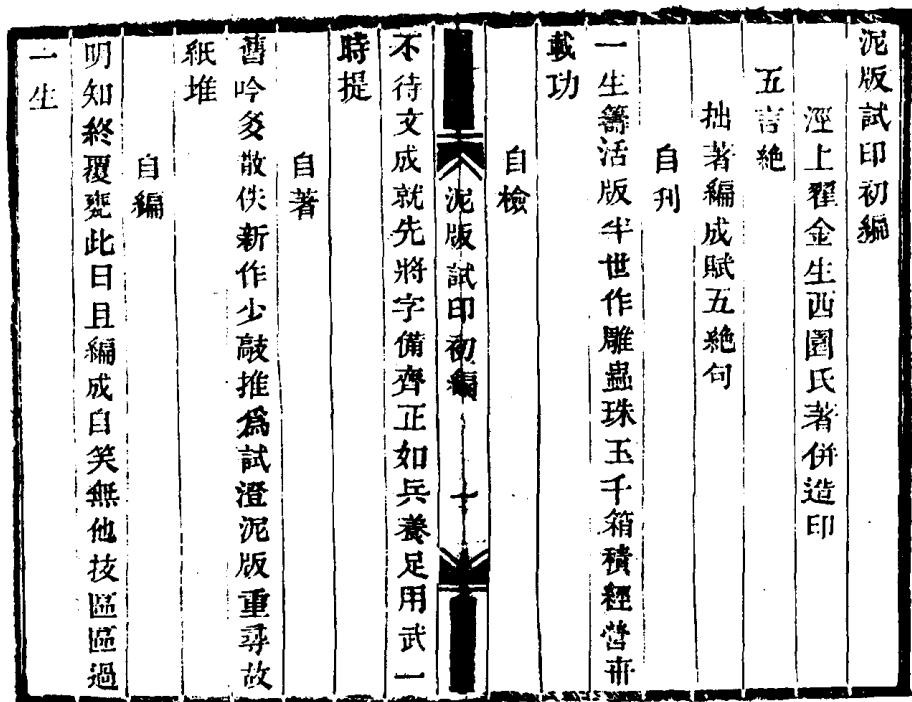 泥版試印初編
涇上翟金生西園氏著併造印
五言絶
拙著編成賦五絶句
自刋
一生籌活版半世作雕蟲珠玉千箱積經營卅
載功
自檢
泥版試印初編
十
不待文成就先將字備齊正如兵養足用武一
時提
自著
舊吟多散佚新作少敲推爲試澄泥版重尋故
紙堆
自編
明知終覆甕此日且編成自笑無他技區區過
一生